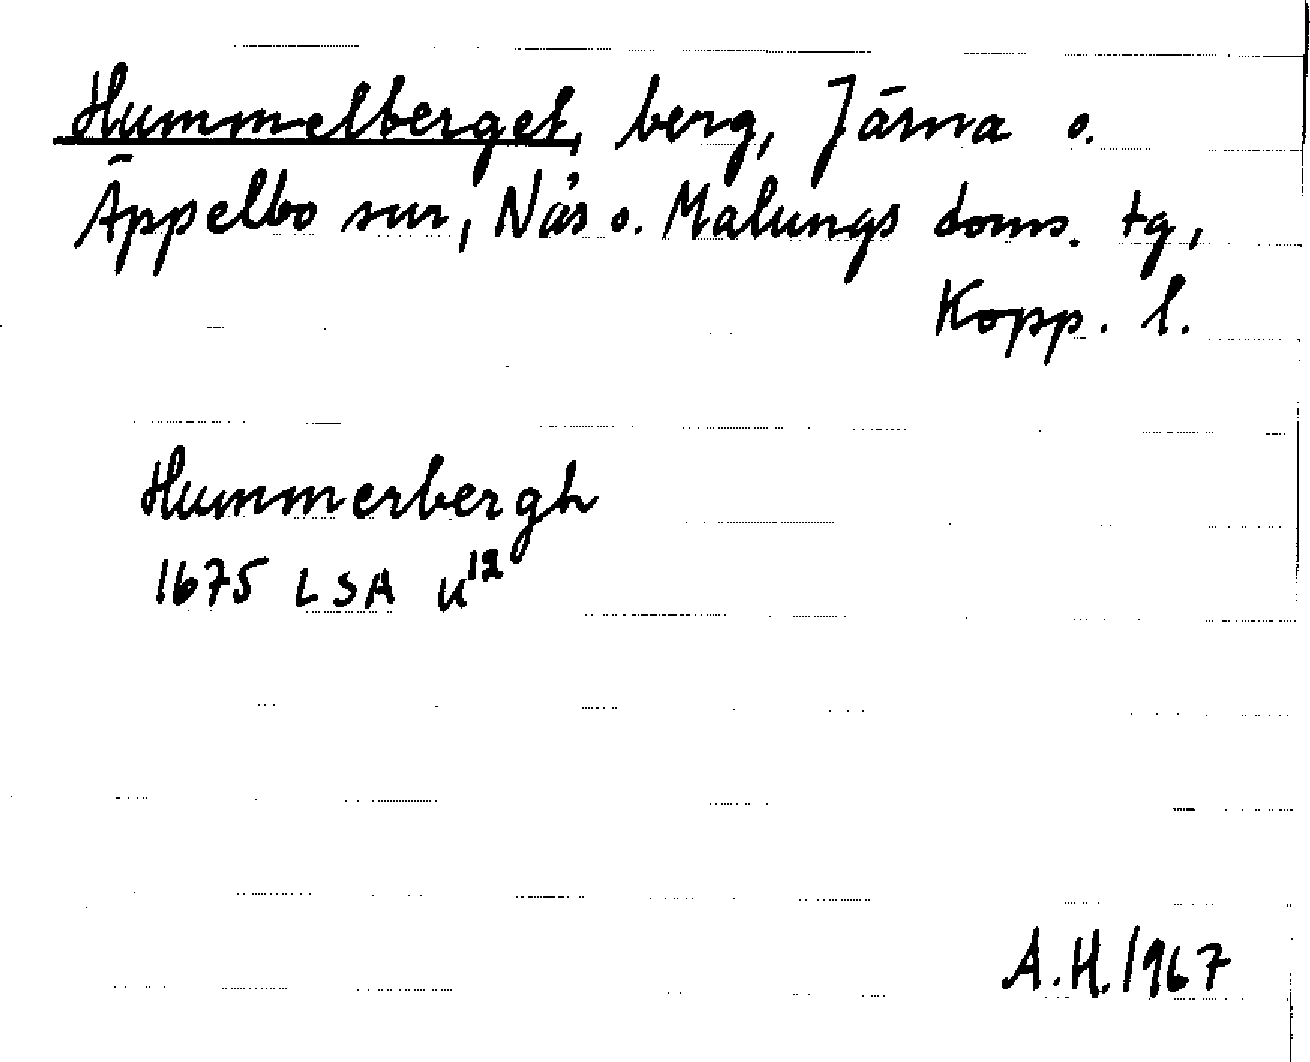 Hummelberget, berg, Järna o.
Äppelbo snr, Nås o. Malungs doms. tg,
Kopp. l.
Hummerbergh
1675 LSA U12
A.H. 1967